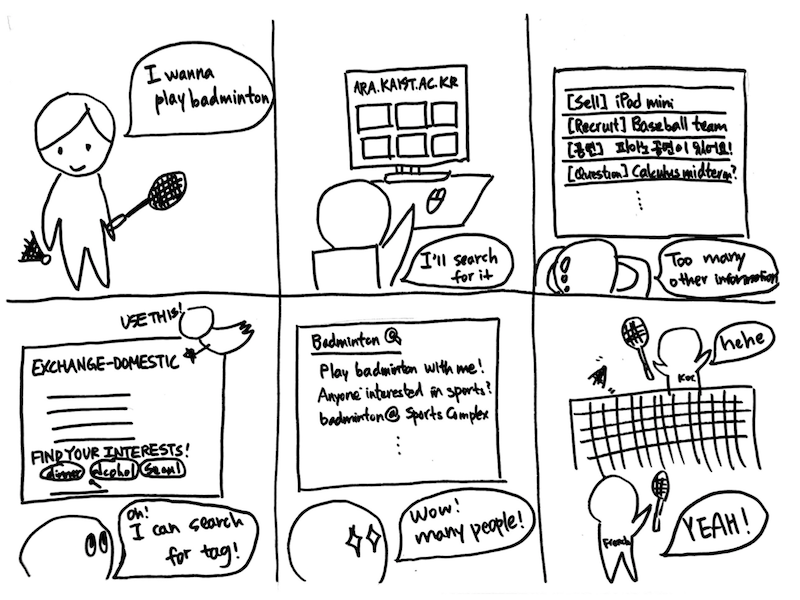 I wanna
play badminton
ARA.KAIST.AC.KR
I'll search
for it
[Sell] iPad mini
[Recruit] Baseball team
[공연] 피아노 공연이 있어요!
[Question] Calculus midterm?
Too many
other information
USE THIS!
EXCHANGE-DOMESTIC
FIND YOUR INTERESTS!
dinner alcohol Seoul
oh!
I can search
for tag!
Badminton
Play badminton with me!
Anyone interested in sports?
badminton@ Sports Complex
Wow!
many people!
hehe
Kor
French
YEAH!